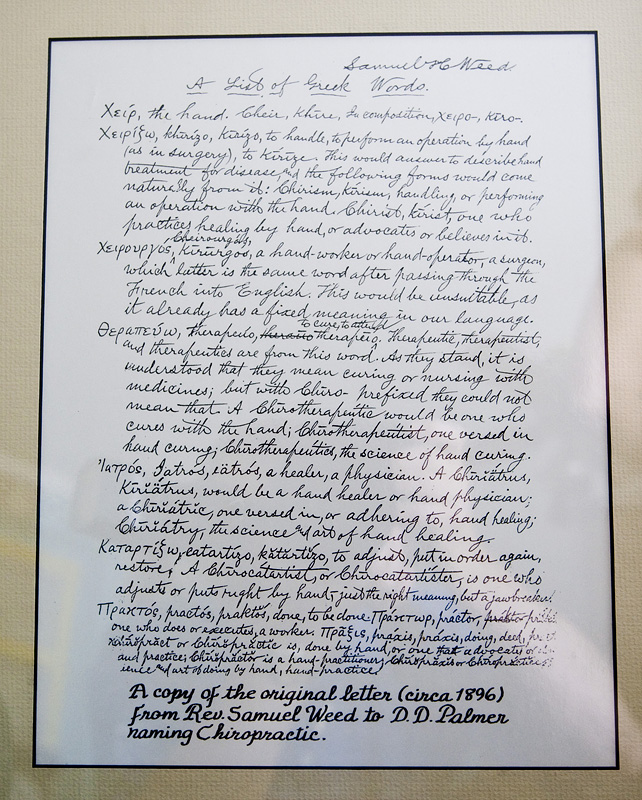 Samuel H Weed.
A List of Greek Words.
Χείρ, the hand. Cheir, Khire, In composition, χειρο-, Kiro-.
Χειρίζω, khirizo, Kirizo, to handle, to perform an operation by hand
(as in surgery), to Kirize. This would answer to describe hand
treatment for disease, and the following forms would come
naturally from it: Chirism, Kirism, handling, or performing
an operation with the hand. Chirist, Kirist, one who
practices healing by hand, or advocates or believes in it.
Cheirourgos,
Χειρουργός, Kirurgos, a hand-worker or hand-operator, a surgeon,
which latter is the same word after passing through the
French into English. This would be unsuitable, as
it already has a fixed meaning in our language.
to cure, to attend
Θεραπεύω, therapeuo, therapeio. Therapeutic, therapeutist,
and therapeutics are from this word. As they stand, it is
understood that they mean curing or nursing with
medicines; but with Chiro- prefixed they could not
mean that. A Chirotherapeutic would be one who
cures with the hand; Chirotherapeutist, one versed in
hand curing; Chirotherapeutics, the science of hand curing.
Ἰατρός, Iatros, iatros, a healer, a physician. A Chiriatrus,
Kiriatrus, would be a hand healer or hand physician;
a Chiriatric, one versed in, or adhering to, hand healing;
Chiriatry, the science and art of hand healing.
Καταρτίζω, catartizo, katartizo, to adjust, put in order again,
restore; A Chirocatartist, or Chirocatartister, is one who
adjusts or puts right by hand, just the right meaning, but a jawbreaker.
Πρακτός, practos, praktos, done, to be done. Πράκτωρ, practor,
one who does or executes, a worker. Πρᾶξις, praxis, praxis, doing, deed,
Chiropract or Chiropractic is, done by hand, or one that advocates or
and practice; Chiropractor is a hand-practitioner; Chiropraxis or Chiropractics
ience and art of doing by hand, hand-practice.
A copy of the original letter (circa 1896)
from Rev. Samuel Weed to D. D. Palmer
naming Chiropractic.